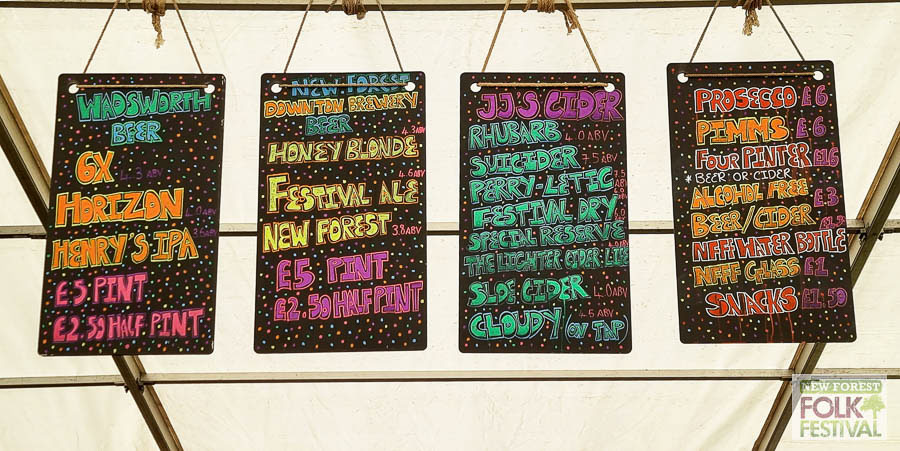 WADSWORTH
BEER
6X
4.3 ABV
HORIZON 4.0 ABV
HENRY'S IPA 3.6 ABV
£5 PINT
£2.50 HALF PINT
NEW FOREST
DOWNTON BREWERY
BEER
4.3 ABV
HONEY BLONDE
4.6 ABV
FESTIVAL ALE
NEW FOREST 3.8 ABV
£5 PINT
£2.50 HALF PINT
JJ'S CIDER
RHUBARB 4.0 ABV
SUICIDER 7.5 ABV
PERRY-LETIC
FESTIVAL DRY
SPECIAL RESERVE
THE LIGHTER CIDER LIFE
SLOE CIDER 4.0 ABV
4.5 ABV
CLOUDY (ON TAP
PROSECCO £6
PIMMS £6
FOUR PINTER £16
*BEER OR CIDER
ALCOHOL FREE £3
BEER/CIDER
NFFF WATER BOTTLE
NFFF GLASS £1
SNACKS £1.50
NEW FOREST
FOLK
FESTIVAL